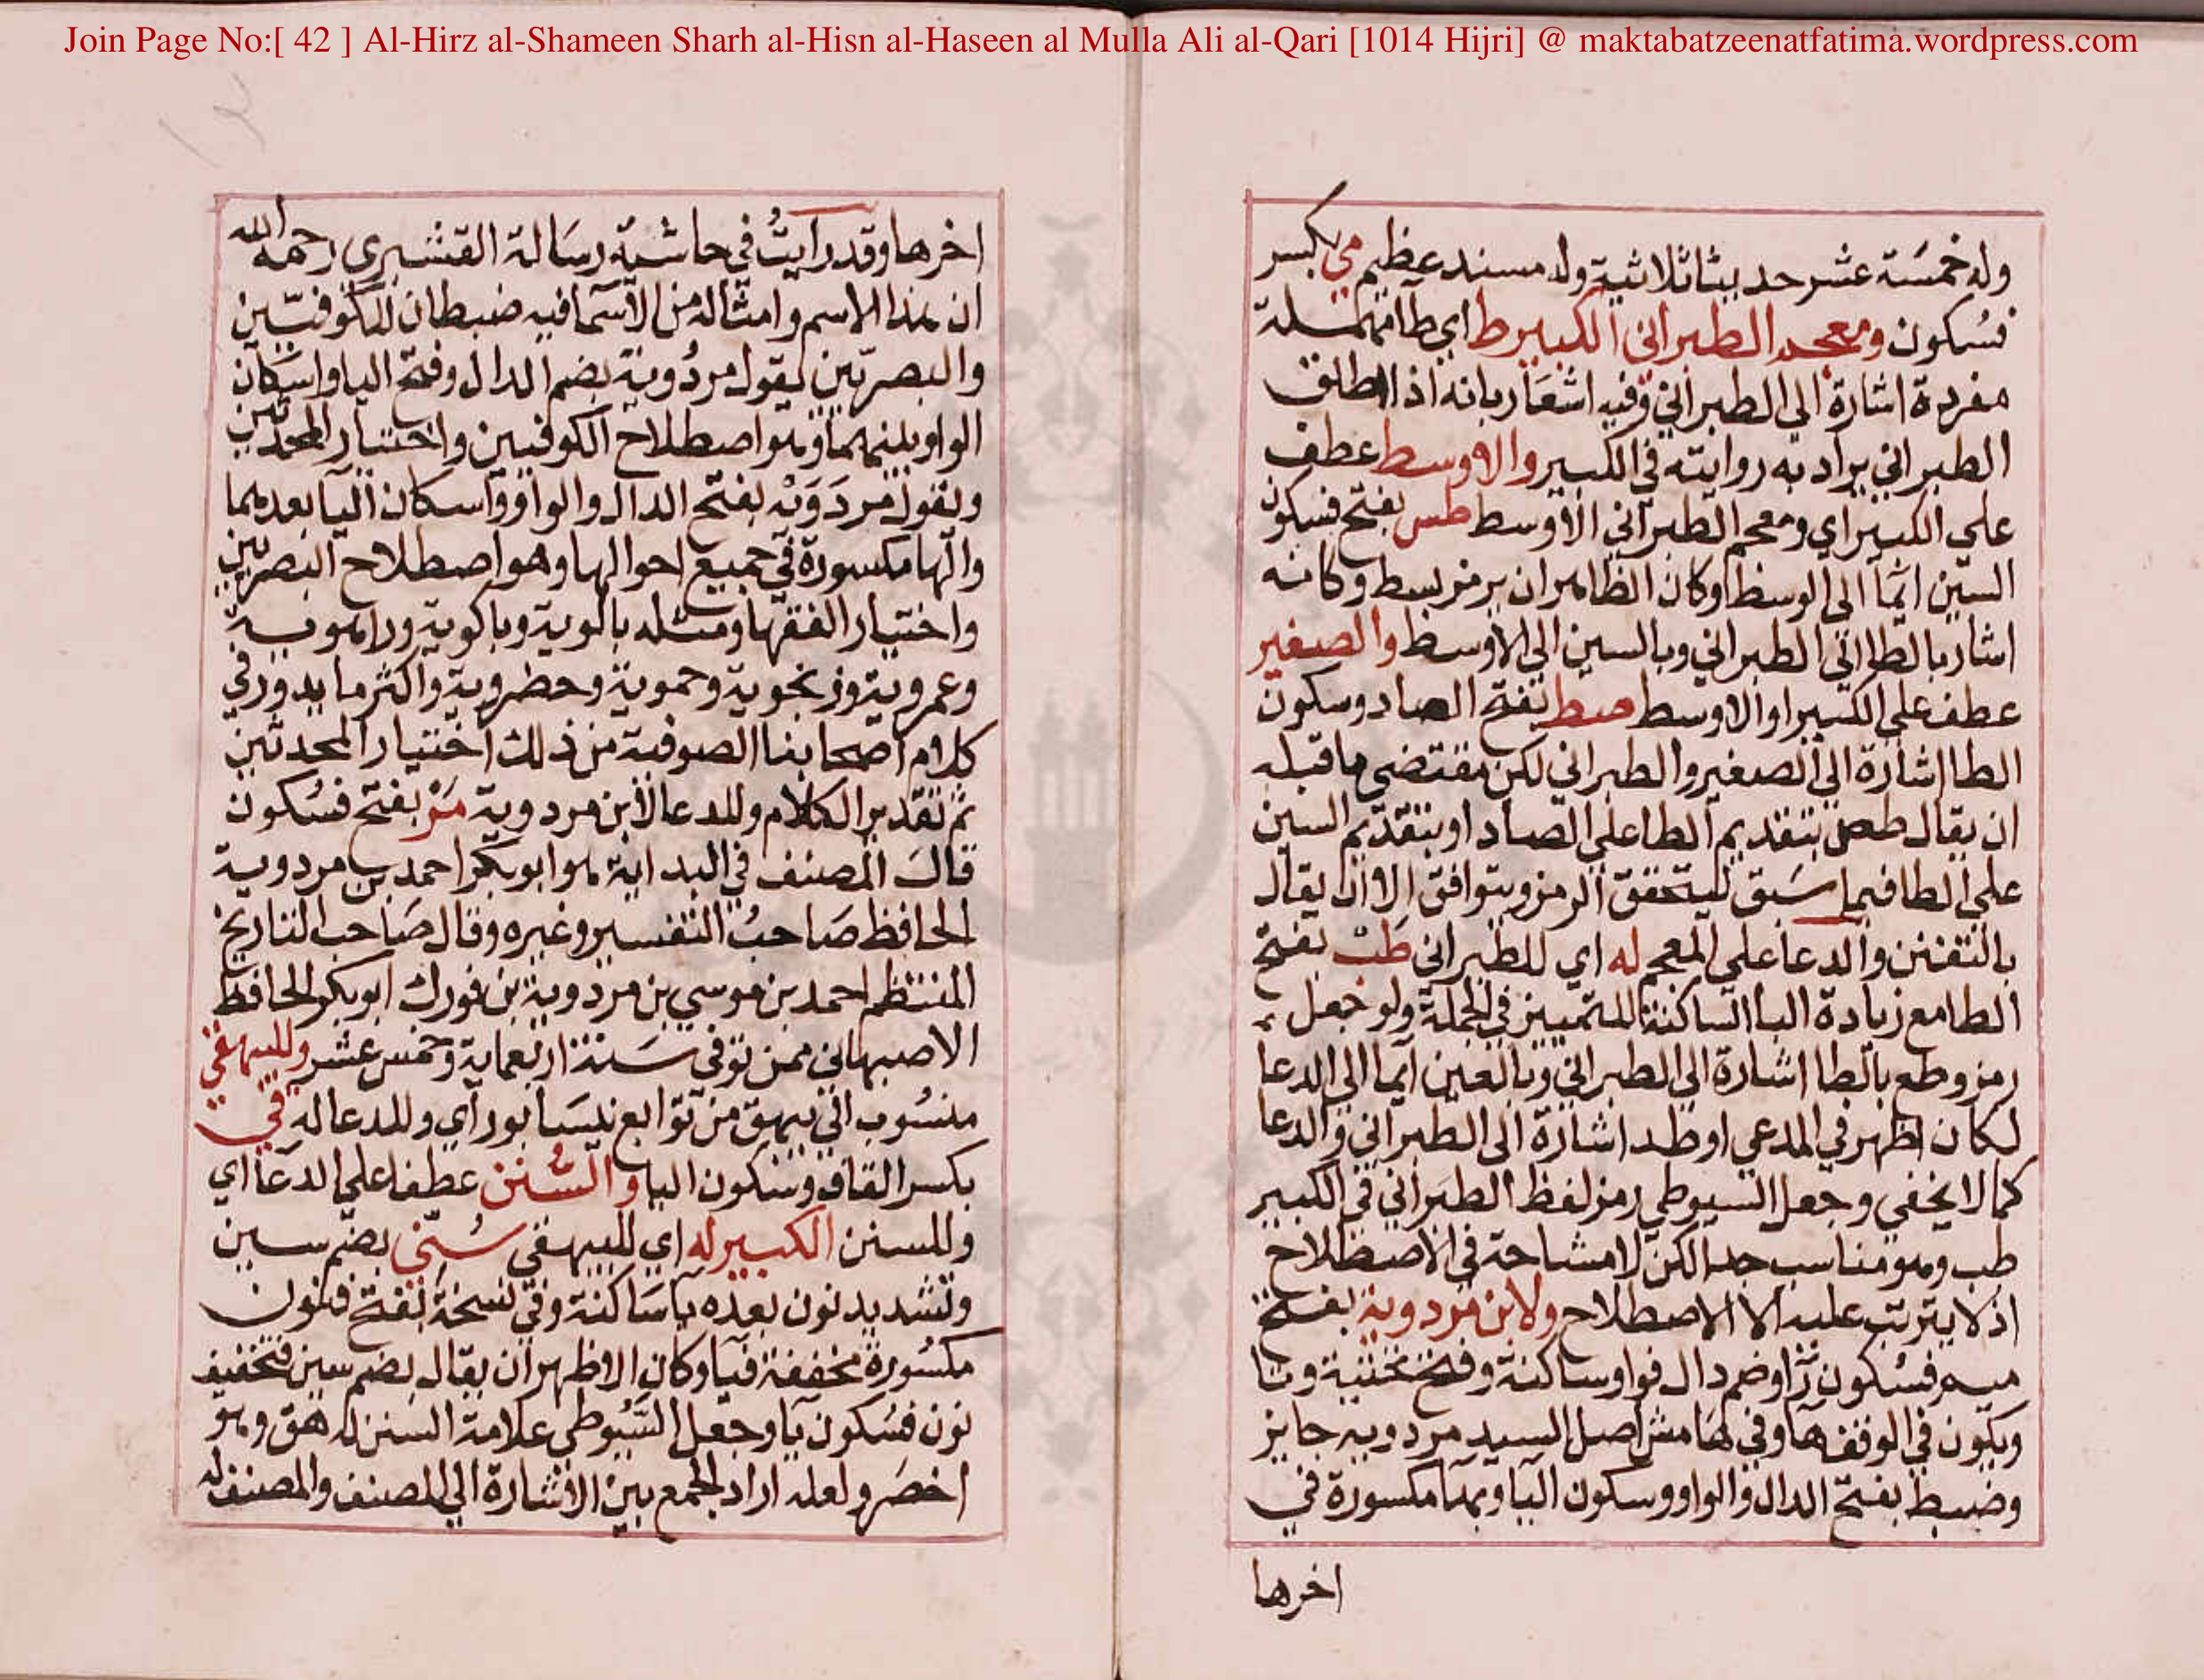 Join Page No:[ 42 ] Al-Hirz al-Shameen Sharh al-Hisn al-Haseen al Mulla Ali al-Qari [1014 Hijri] @ maktabatzeenatfatima.wordpress.com
وله خمسة عشر حديثا ثلاثية وله مسند عظيم مي بكسر
فسكون ومعجم الطبراني الكبير ط اي طا مهملة
مفردة اشارة الي الطبراني وفيه اشعار بانه اذا اطلق
الطبراني يراد به روايته في الكبير والاوسط عطف
علي الكبير اي ومعجم الطبراني الاوسط طس بفتح فسكون
السين ايما الي الوسط وكان الظاهر ان يرمز بسط وكانه
اشار بالطا الي الطبراني وبالسين الي الاوسط والصغير
عطف علي الكبير او الاوسط صط بفتح الصاد وسكون
الطا اشارة الي الصغير والطبراني لكن مقتضي ما قبله
ان يقال طص بتقديم الطا علي الصاد او بتقديم السين
علي الطا فيما سبق ليتحقق الرمز ويتوافق الا ان يقال
بالتفنن والدعا علي المعجم له اي للطبراني طب بفتح
الطا مع زيادة البا الساكنة للتمييز في الجملة ولو جعل
رمزه طع بالطا اشارة الي الطبراني وبالعين ايما الي الدعا
لكان اظهر في المدعي او طد اشارة الي الطبراني والدعا
كما لا يخفي وجعل السيوطي رمز لفظ الطبراني في الكبير
طب وهو مناسب جدا لكن لا مشاحة في الاصطلاح
اذ لا يترتب عليه الا الاصطلاح ولابن مردوية بفتح
ميم فسكون را وضم دال فواو ساكنة وفتح تحتية وتا
ويكون في الوقف ها وفي هامش اصل السيد مردويه جايز
وضبط بفتح الدال والواو وسكون اليا وبها مكسورة في
اخرها
اخرها وقد رايت في حاشية رسالة القشيري رحمه الله
ان هذا الاسم وامثاله من الاسما فيه ضبطان للكوفيين
والبصريين يقول مردوية بضم الدال وفتح اليا واسكان
الواو بينهما وهو اصطلاح الكوفيين واختيار المحدثين
ويقول مردويه بفتح الدال والواو واسكان اليا بعدهما
والها مكسورة في جميع احوالها وهو اصطلاح البصريين
واختيار الفقها ومثله بالوية وباكوية وراهوية
وعمروية وزنجوية وحموية وحضروية واكثر ما يدور في
كلام اصحابنا الصوفية من ذلك اختيار المحدثين
ثم تقدير الكلام وللدعا لابن مردوية مر بفتح فسكون
قال المصنف في البداية هو ابو بكر احمد بن مردوية
الحافظ صاحب التفسير وغيره وقال صاحب التاريخ
المنتظم احمد بن موسي بن مردوية بن فورك ابو بكر الحافظ
الاصبهاني ممن توفي سنة اربعماية وخمس عشر وللبيهقي
منسوب الي بيهق من توابع نيسابور اي وللدعا له قي
بكسر القاف وسكون اليا والسنن عطفا علي الدعا اي
وللسنن الكبير له اي للبيهقي سني بضم سين
وتشديد نون بعده يا ساكنة وفي نسخة بفتح فنون
مكسورة مخففة فيا وكان الاظهر ان يقال بضم سين فتخفيف
نون فسكون يا وجعل السيوطي علامة السنن له هق وهو
اخصر ولعله اراد الجمع بين الاشارة الي المصنف والمصنف له